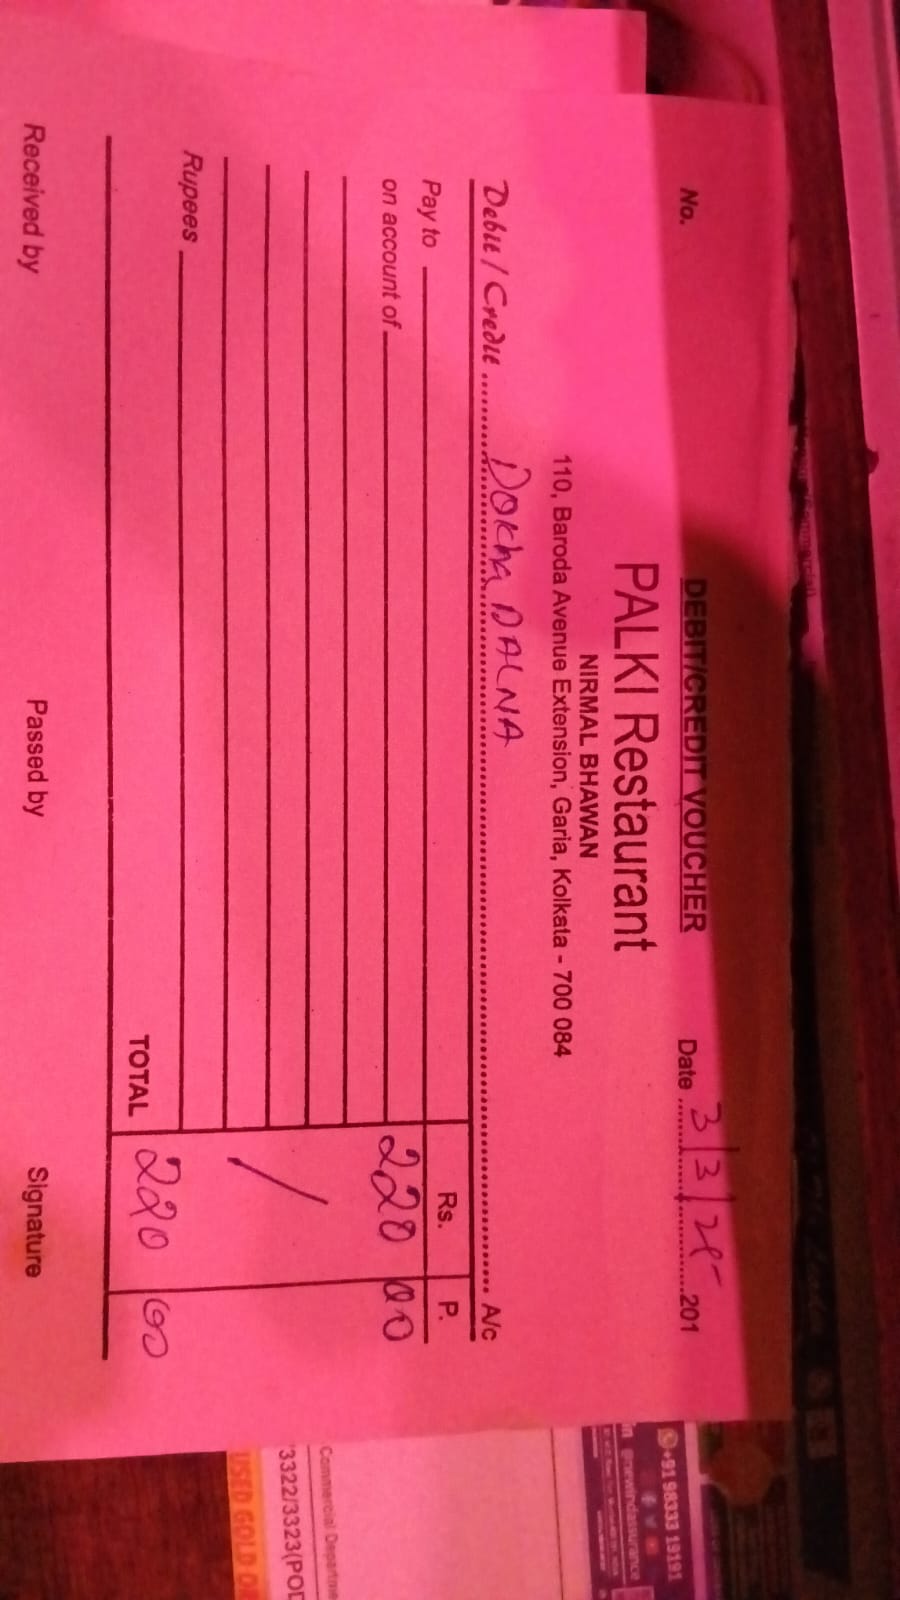 DEBIT/CREDIT VOUCHER
No.
Date 3/3/25 201
PALKI Restaurant
NIRMAL BHAWAN
110, Baroda Avenue Extension, Garia, Kolkata - 700 084
Debit / Credit DOKhA DALNA A/c
Pay to Rs. P.
on account of 220 00
Rupees
TOTAL 220 00
Received by Passed by Signature
+91 98333 19191
Commercial
3322/3323(POD
USED GOLD